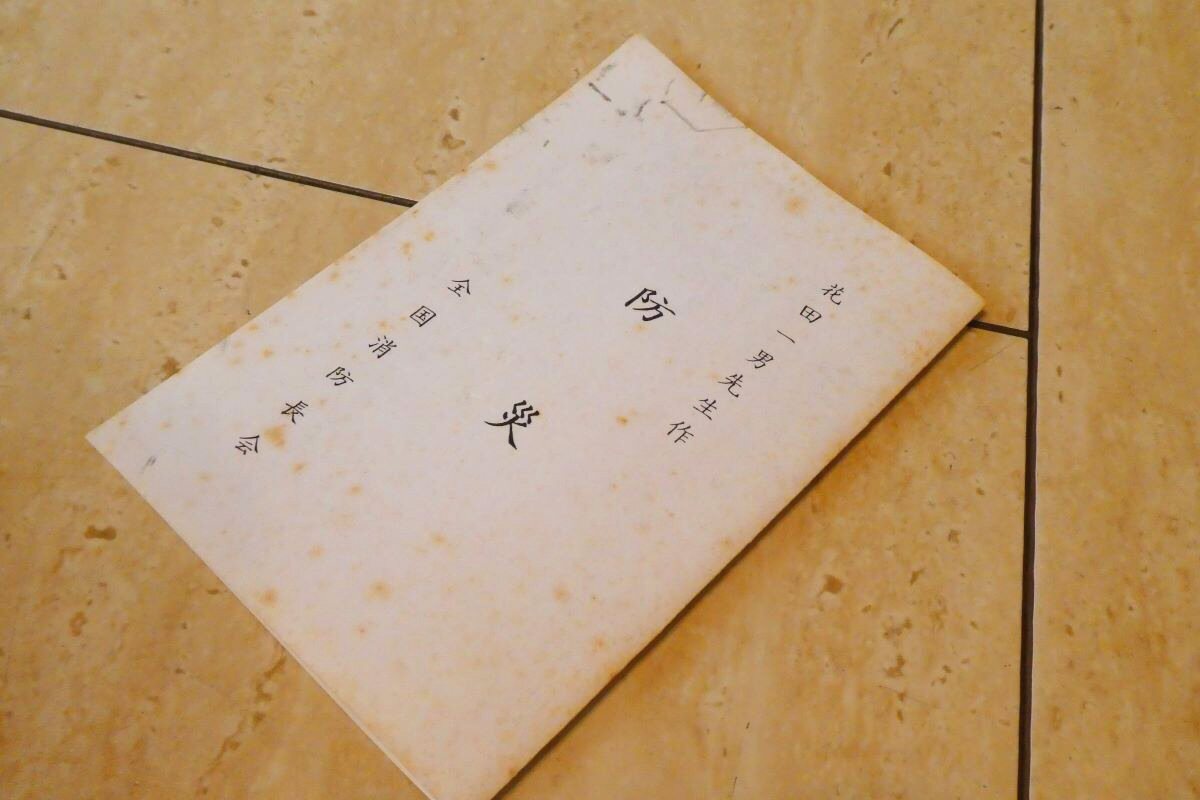 花田一男先生作
防災
全国消防長会